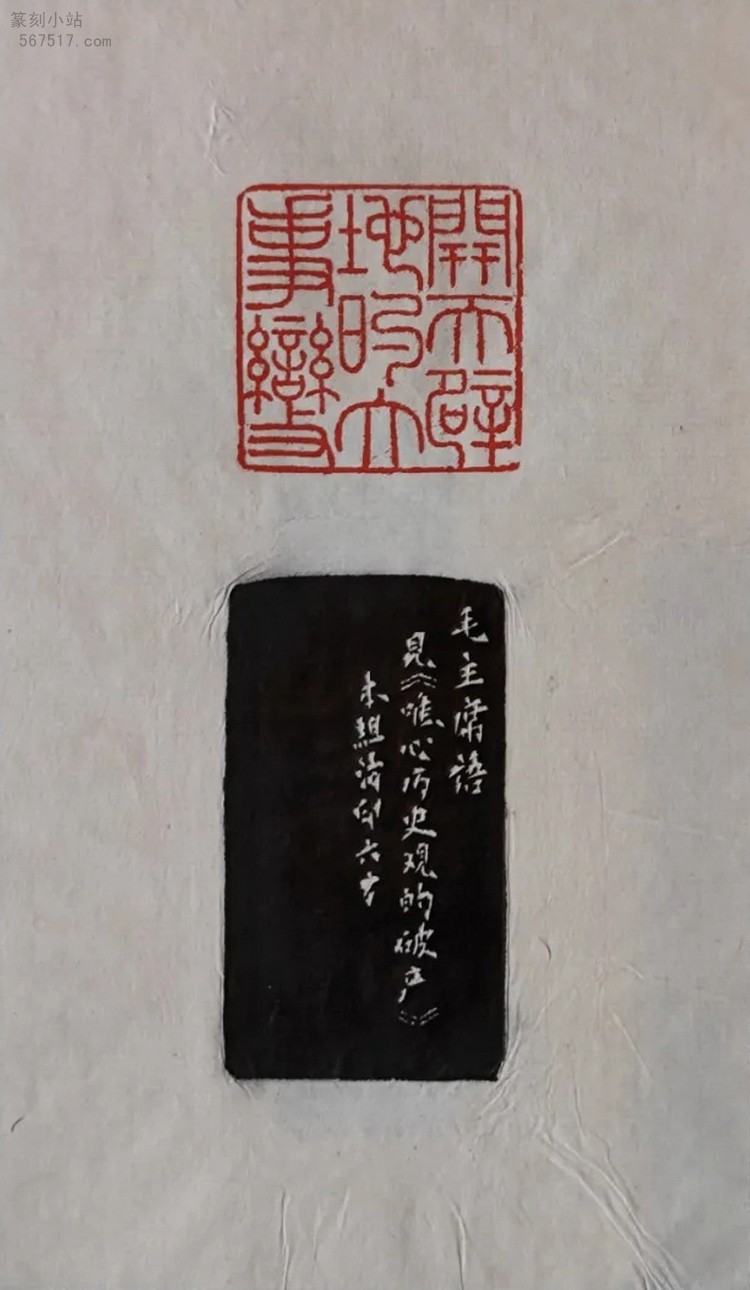 篆刻小站
567517.com
開天辟
地的大
事變
毛主席語
見《唯心历史观的破产》
本組印六方